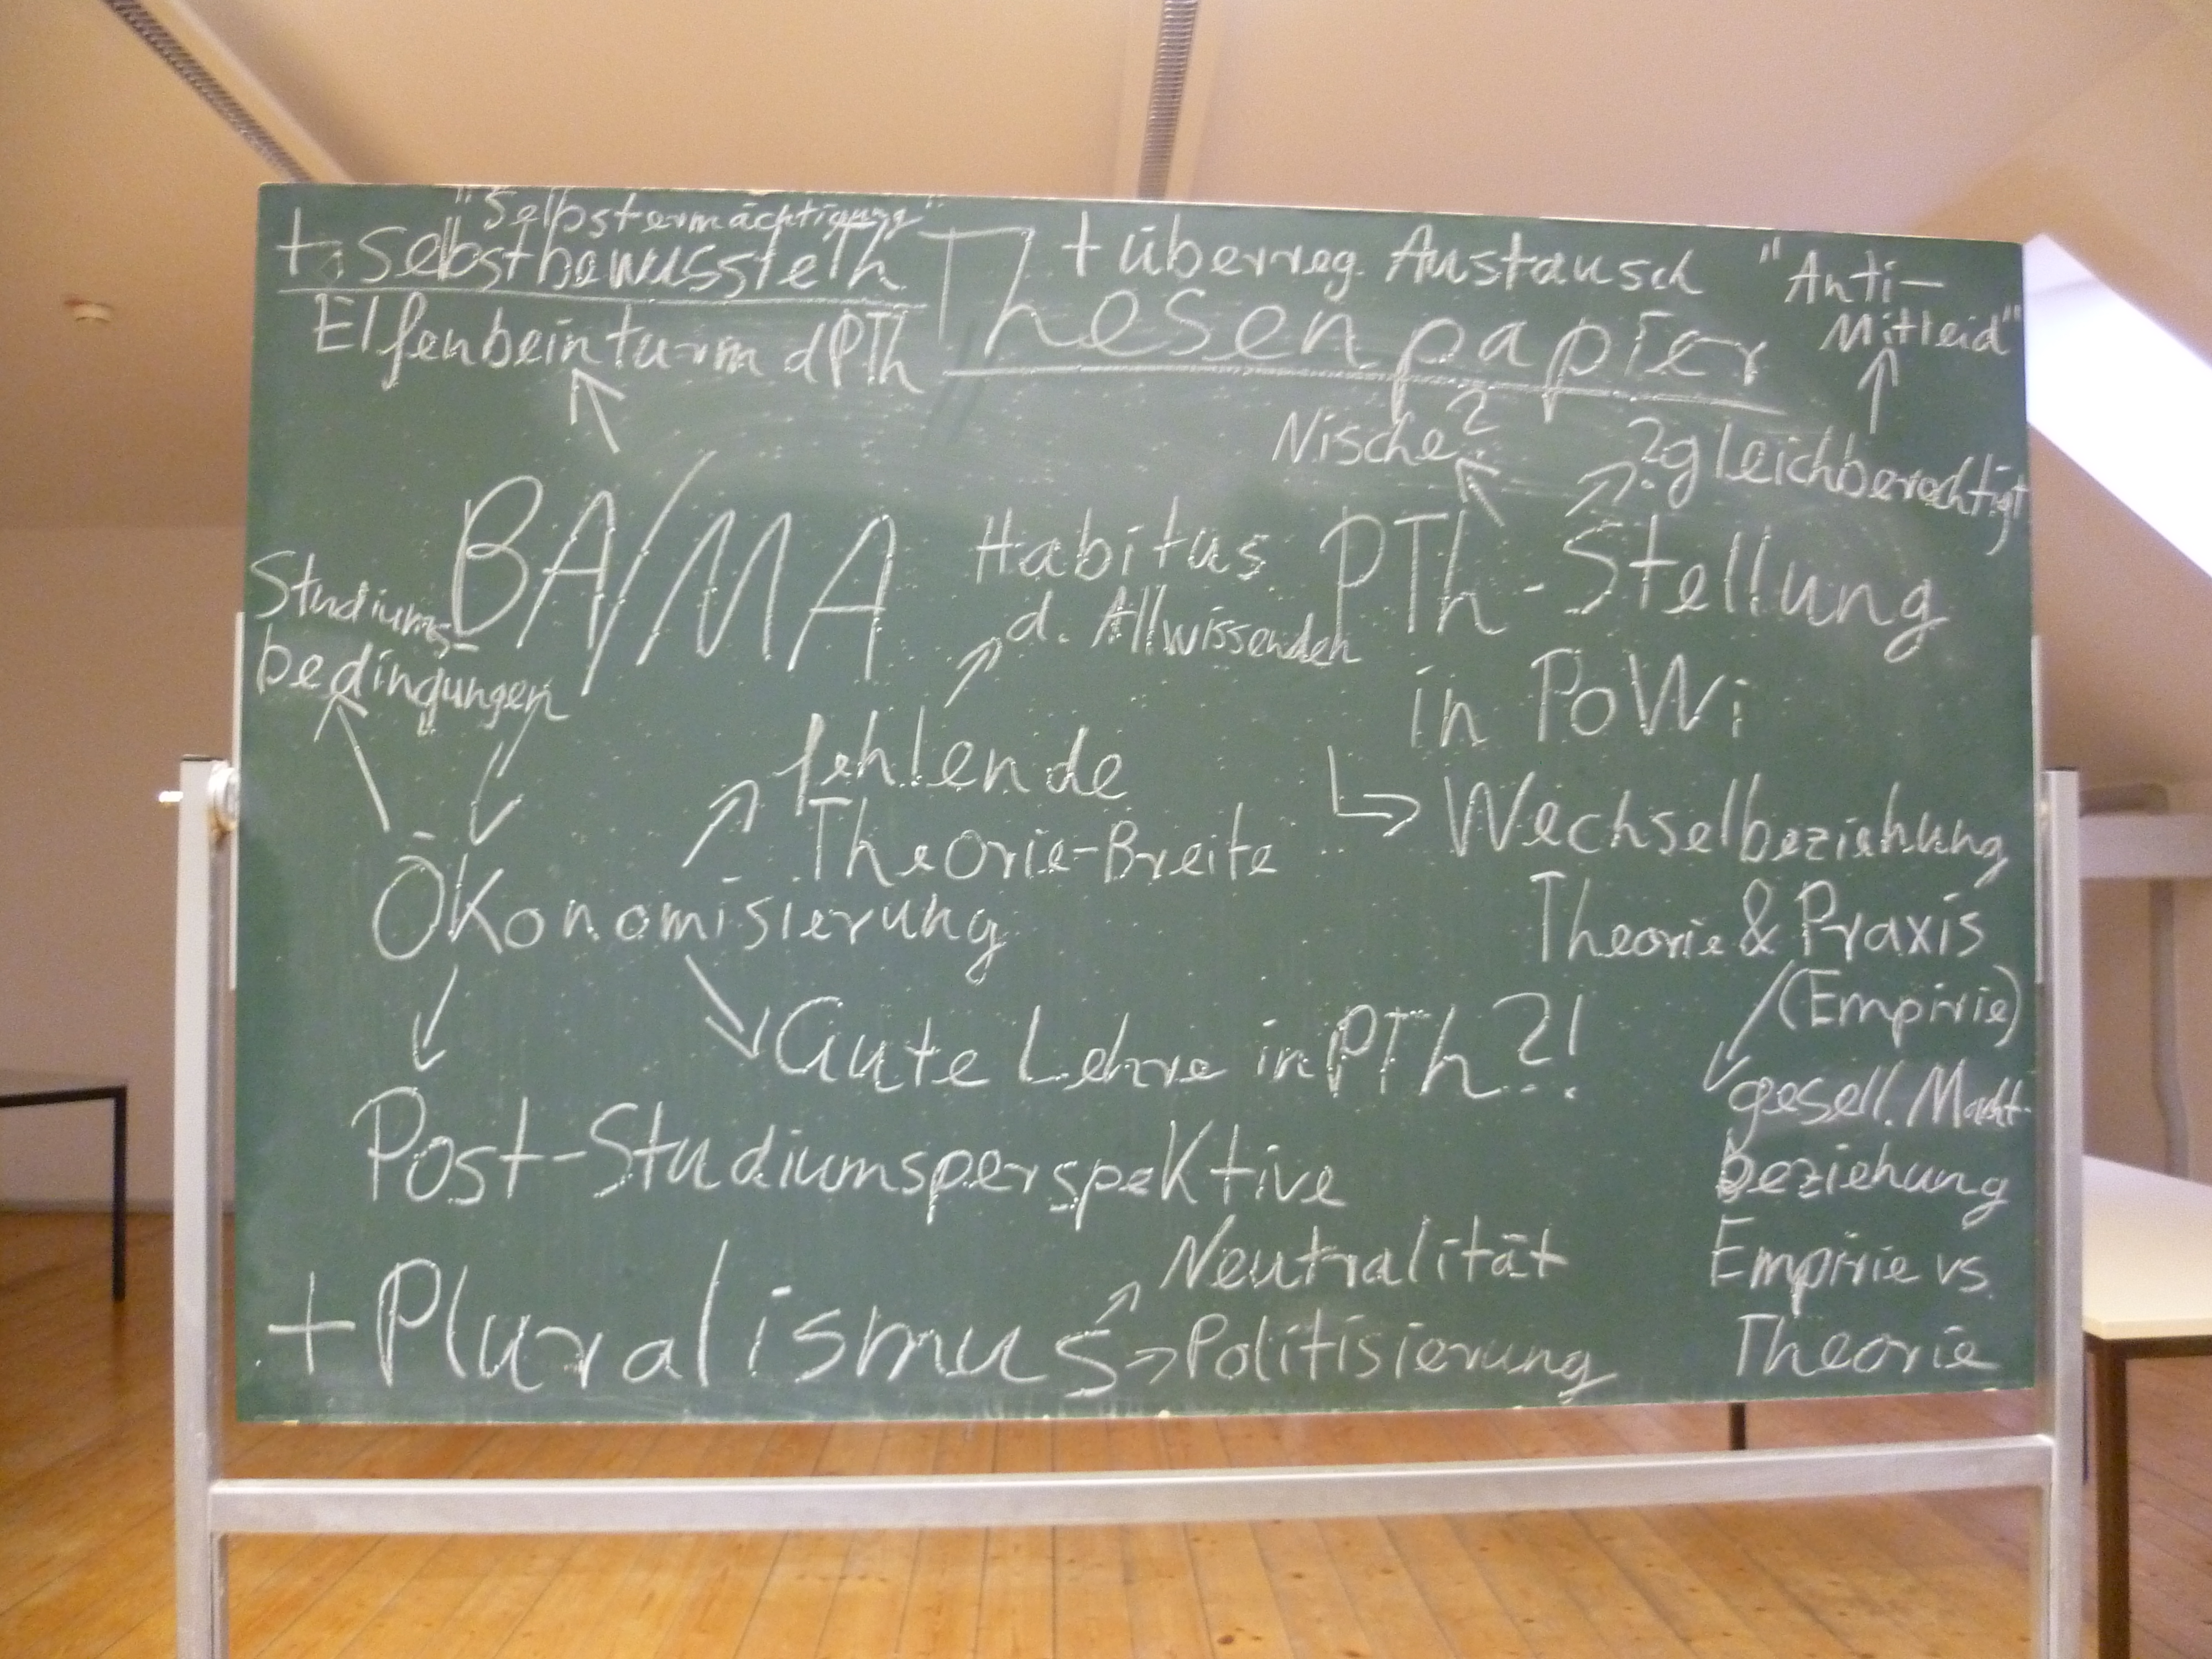 "Selbstermächtigung"
+ Selbstbewusste Th
Elfenbeinturm d PTh
Thesenpapier
+ überreg. Austausch
"Anti-
Mitleid"
Nische?
? gleichberechtigt
BA/MA
Habitus
d. Allwissenden
PTh-Stellung
in PoWi
Studiums-
bedingungen
fehlende
Theorie-Breite
Wechselbeziehung
Theorie & Praxis
(Empirie)
Ökonomisierung
Gute Lehre in PTh?!
gesell. Macht-
beziehung
Post-Studiumsperspektive
Empirie vs.
Theorie
+Pluralismus
Neutralität
Politisierung